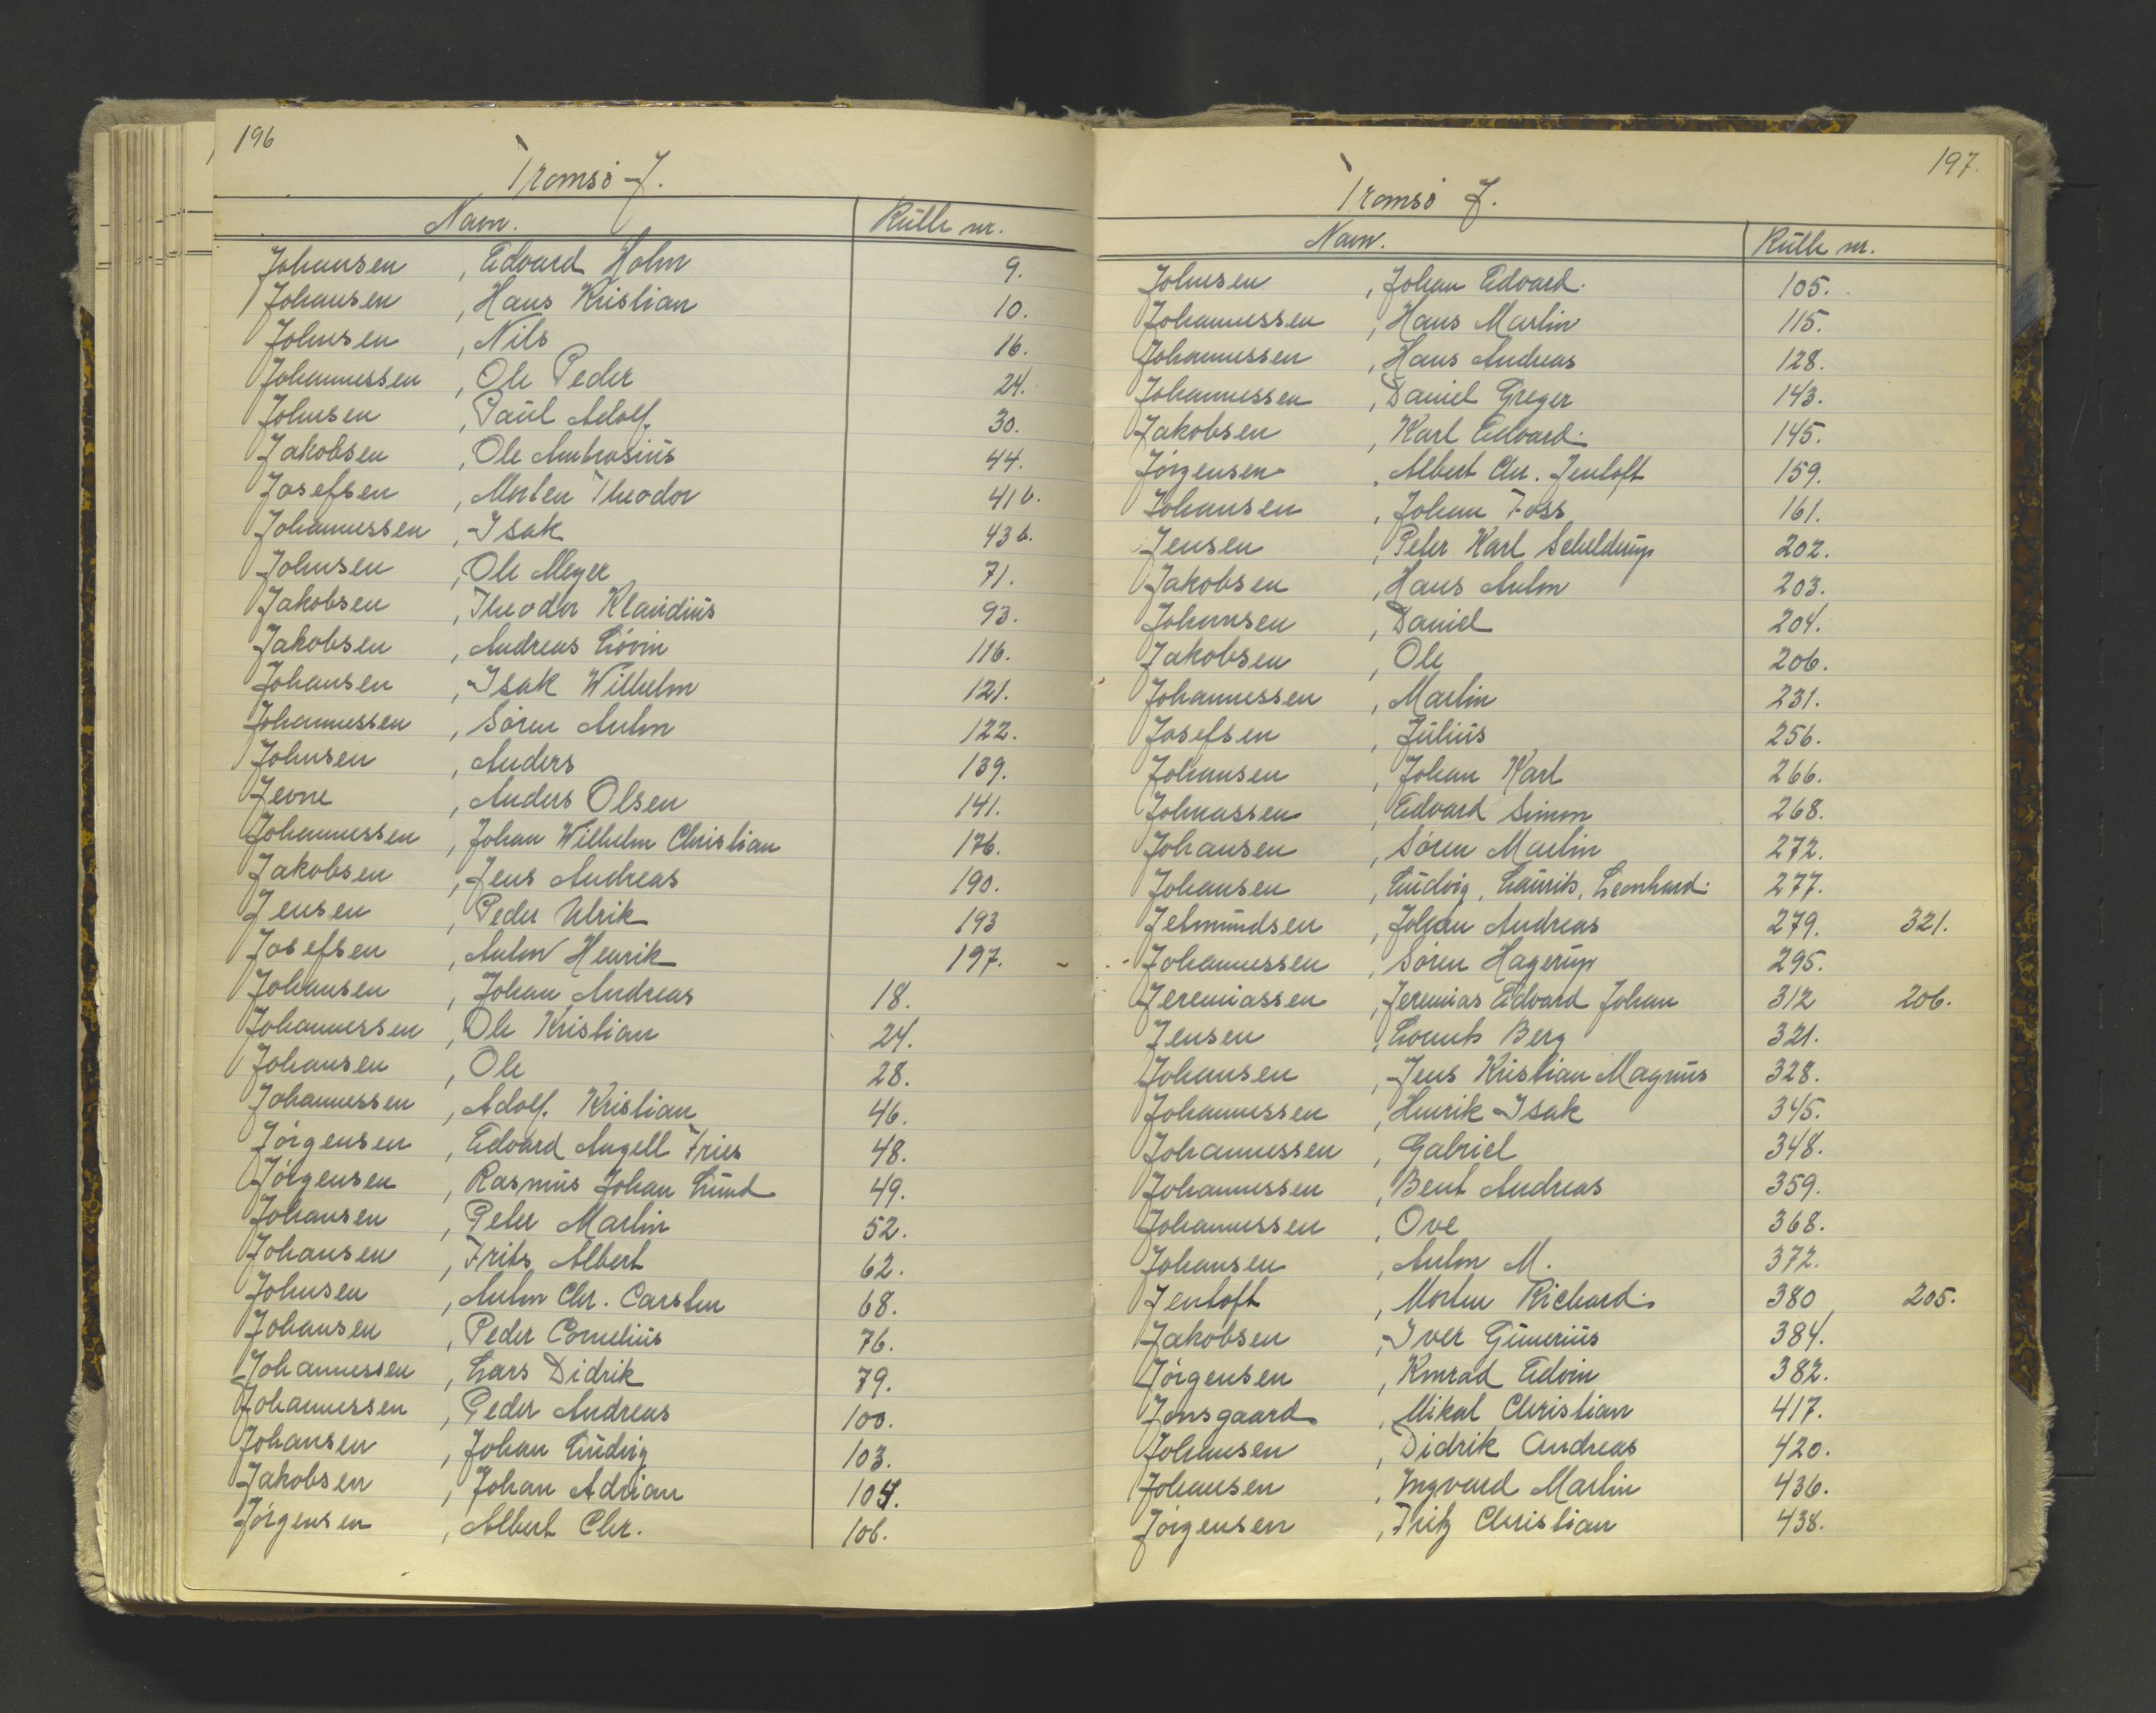 196
Tromsö J.
Navn. Rulle nr.
Johansen , Edvard Holm 9.
Johansen , Hans Kristian 10.
Johnsen , Nils 16.
Johannessen , Ole Peder 24.
Johnsen , Paul Adolf. 30.
Jakobsen , Ole Ambrosius 44.
Josefsen , Morten Theodor 41 b.
Johannessen , Isak 43 b.
Johnsen , Ole Meyer 71.
Jakobsen , Theodor Klaudius 93.
Jakobsen , Andreas Lövin 116.
Johansen , Isak Wilhelm 121.
Johannessen , Sören Anton 122.
Johnsen , Anders 139.
Jevne , Anders Olsen 141.
Johannessen , Johan Wilhelm Christian 176.
Jakobsen , Jens Andreas 190.
Jensen , Peder Ulrik 193
Josefsen , Anton Henrik 197.
Johansen , Johan Andreas 18.
Johannessen , Ole Kristian 24.
Johansen , Ole 28.
Johannessen , Adolf. Kristian 46.
Jörgensen , Edvard Angell Fries 48.
Jörgensen , Rasmus Johan Lund 49.
Johansen , Peter Martin 52.
Johansen , Frits Albert 62.
Johnsen , Anton Chr. Carsten 68.
Johansen , Peder Cornelius 76.
Johannessen , Lars Didrik 79.
Johannessen , Peder Andreas 100.
Johansen , Johan Ludvig 103.
Jakobsen , Johan Adrian 104.
Jörgensen , Albert Chr. 106.
197.
Tromsö J.
Navn. Rulle nr.
Johnsen , Johan Edvard. 105.
Johannessen , Hans Martin 115.
Johannessen , Hans Andreas 128.
Johannessen , Daniel Greger 143.
Jakobsen , Karl Edvard. 145.
Jörgensen , Albert Chr. Jentoft 159.
Johansen , Johan Foss 161.
Jensen , Peter Karl Schelderup 202.
Jakobsen , Hans Anton 203.
Johansen , Daniel 204.
Jakobsen , Ole 206.
Johannessen , Martin 231.
Josefsen , Julius 256.
Johansen , Johan Karl 266.
Johnassen , Edvard Simon 268.
Johansen , Sören Martin 272.
Johansen , Ludvig, Laurits, Leonhard. 277.
Jelmundsen , Johan Andreas 279. 321.
Johannessen , Sören Hagerup 295.
Jeremiassen , Jeremias Edvard Johan 312 206.
Jensen , Lorents Berg 321.
Johansen , Jens Kristian Magnus 328.
Johannessen , Henrik Isak 345.
Johannessen , Gabriel 348.
Johannessen , Bent Andreas 359.
Johannessen , Ove 368.
Johansen , Anton M. 372.
Jentoft , Morten Richard. 380 205.
Jakobsen , Iver Gunerius 384.
Jörgensen , Konrad Edvin 382.
Jonsgaard , Mikal Christian 417.
Johansen , Didrik Andreas 420.
Johansen , Ingvard Martin 436.
Jörgensen , Fritz Christian 438.